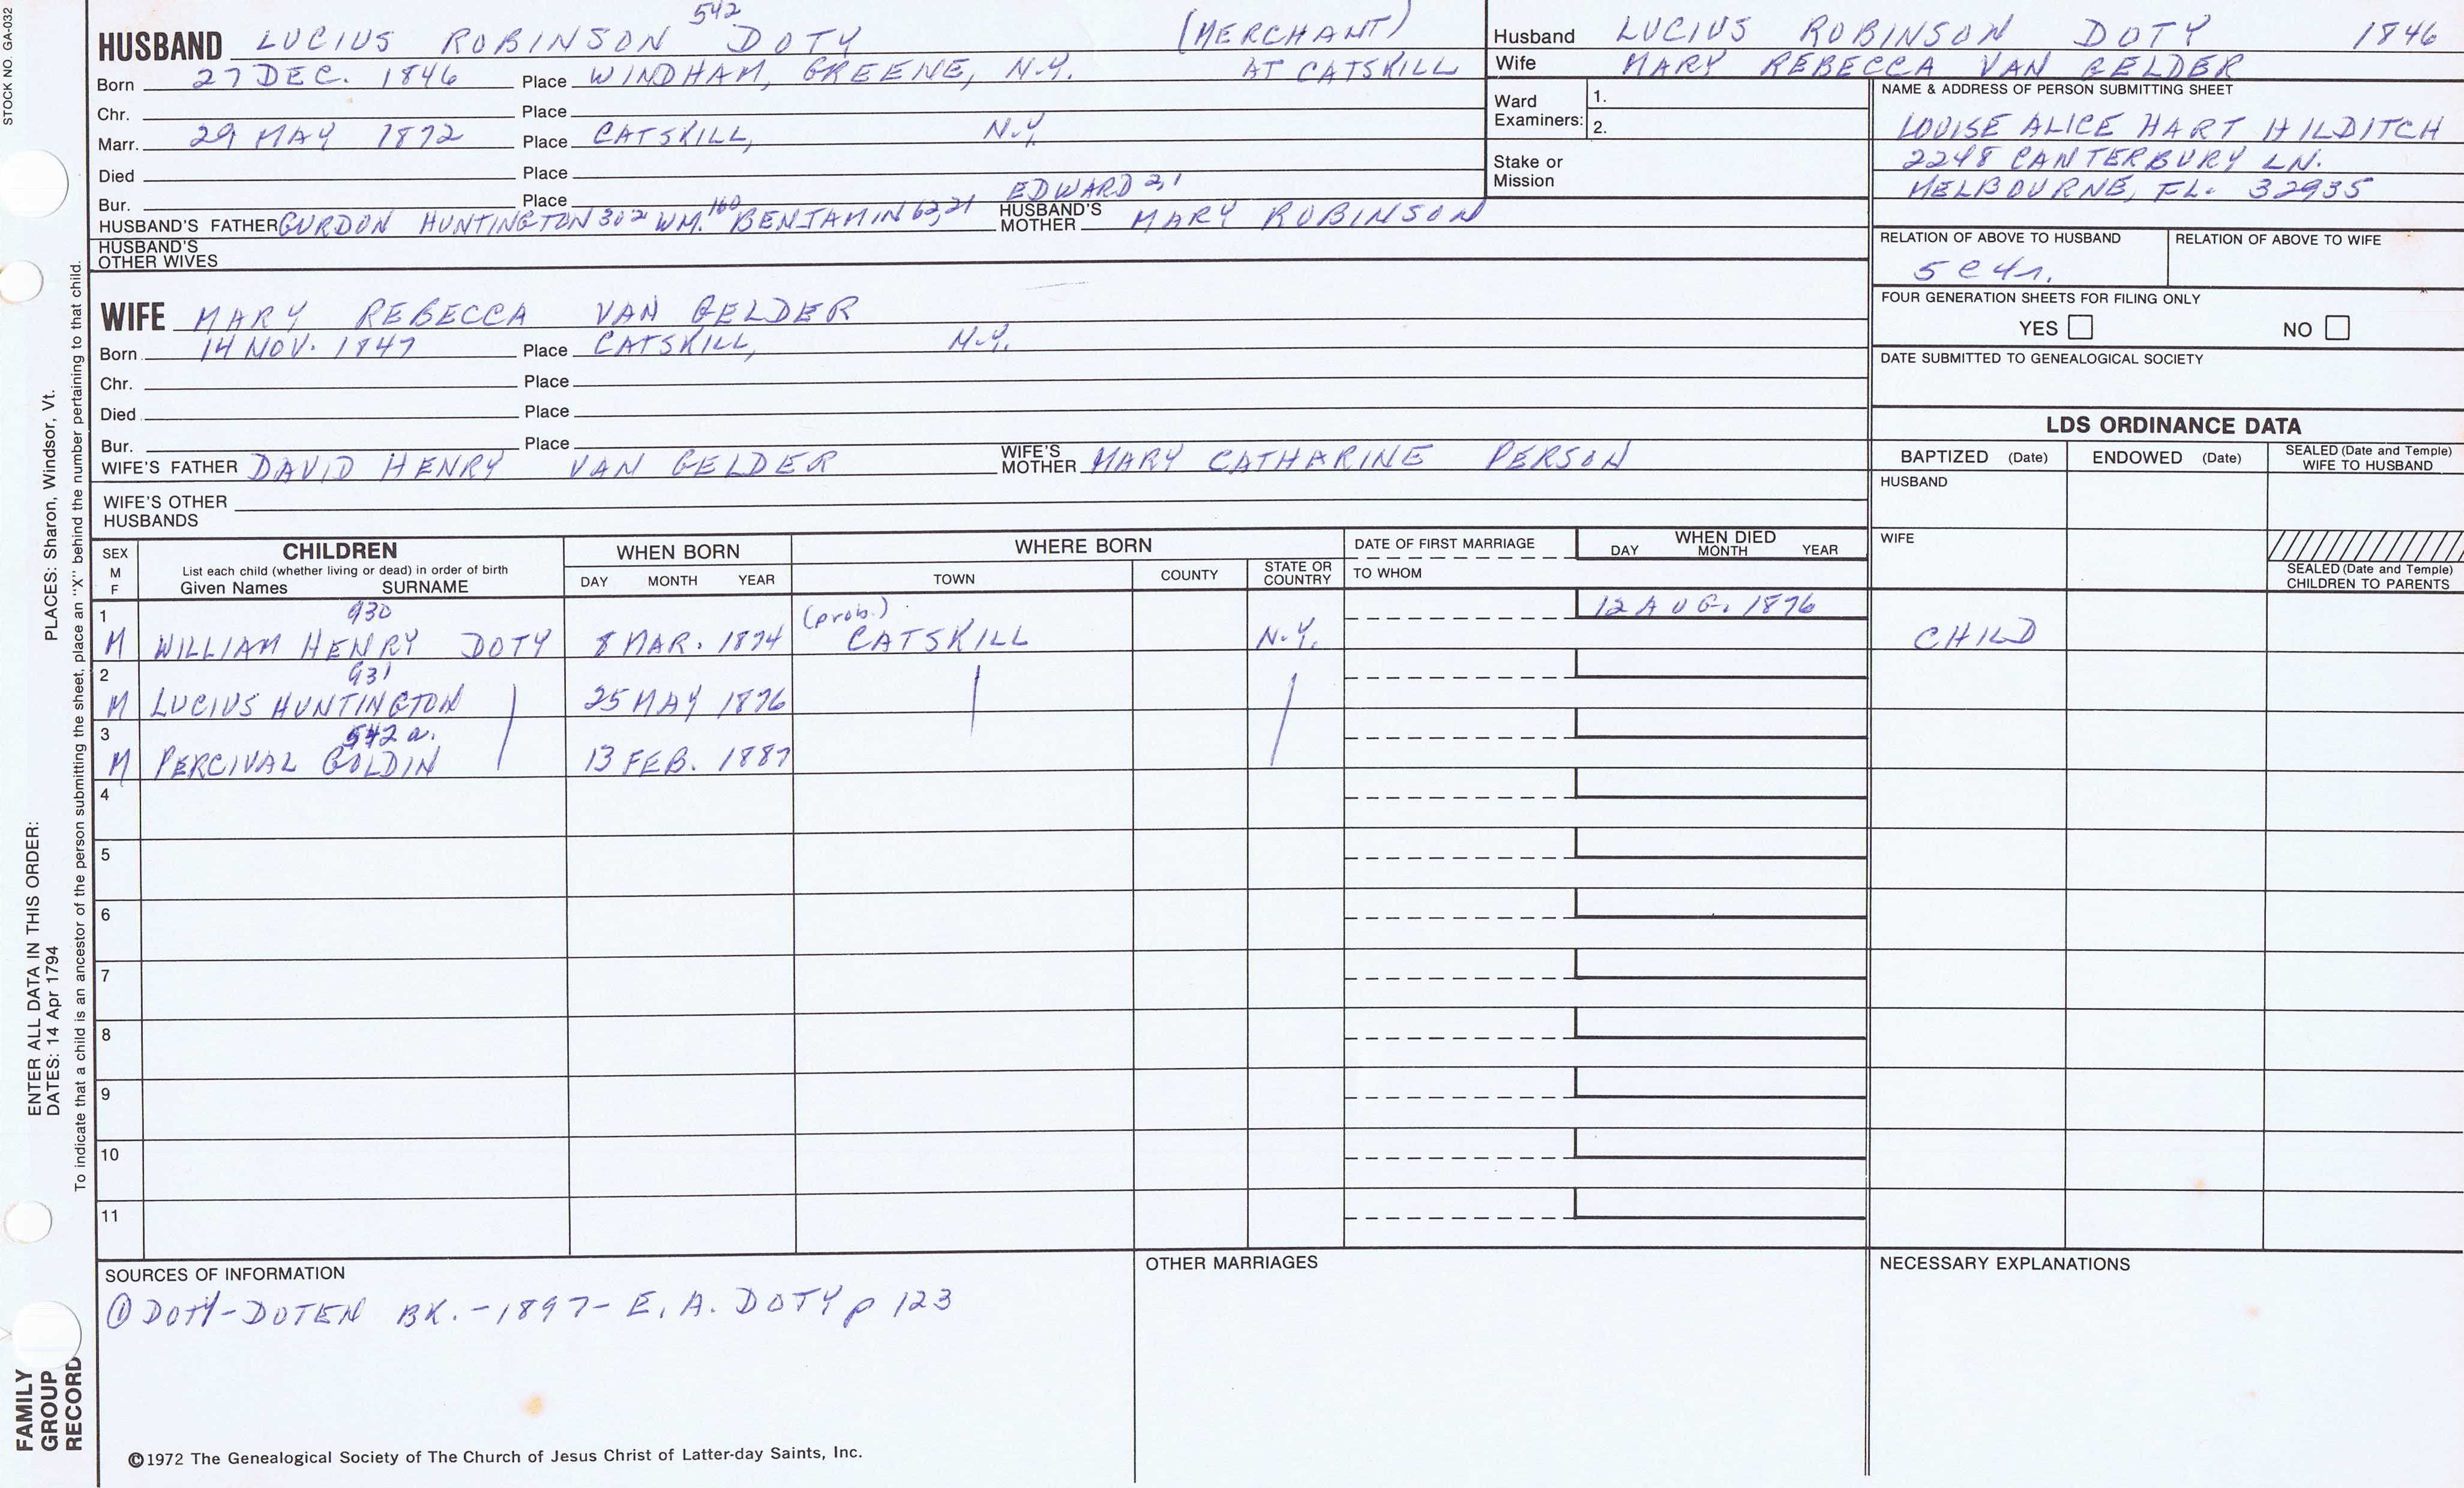 STOCK NO. GA-032
542
HUSBAND LUCIUS ROBINSON DOTY (MERCHANT)
Born 27 DEC. 1846 Place WINDHAM, GREENE, N.Y. AT CATSKILL
Chr. Place
Marr. 29 MAY 1872 Place CATSKILL, N.Y.
Died Place
Bur. Place EDWARD 2,1
HUSBAND'S FATHER GURDON HUNTINGTON 302 WM. 160 BENJAMIN 62,21 HUSBAND'S MOTHER MARY ROBINSON
HUSBAND'S
OTHER WIVES
WIFE MARY REBECCA VAN GELDER
Born 14 NOV. 1847 Place CATSKILL, N.Y.
Chr. Place
Died Place
Bur. Place
WIFE'S FATHER DAVID HENRY VAN GELDER WIFE'S MOTHER MARY CATHARINE PERSON
WIFE'S OTHER
HUSBANDS
Husband LUCIUS ROBINSON DOTY 1846
Wife MARY REBECCA VAN GELDER
Ward Examiners: 1.
2.
Stake or
Mission
NAME & ADDRESS OF PERSON SUBMITTING SHEET
LOUISE ALICE HART HILDITCH
2248 CANTERBURY LN.
MELBOURNE, FL. 32935
RELATION OF ABOVE TO HUSBAND RELATION OF ABOVE TO WIFE
5 c 4 r.
FOUR GENERATION SHEETS FOR FILING ONLY
YES NO
DATE SUBMITTED TO GENEALOGICAL SOCIETY
LDS ORDINANCE DATA
BAPTIZED (Date) ENDOWED (Date) SEALED (Date and Temple) WIFE TO HUSBAND
HUSBAND
WIFE
SEALED (Date and Temple)
CHILDREN TO PARENTS
SEX M F CHILDREN WHEN BORN WHERE BORN DATE OF FIRST MARRIAGE WHEN DIED
List each child (whether living or dead) in order of birth
Given Names SURNAME DAY MONTH YEAR TOWN COUNTY STATE OR COUNTRY TO WHOM DAY MONTH YEAR
1 930 (prob.) 12 AUG. 1876
M WILLIAM HENRY DOTY 8 MAR. 1874 CATSKILL N.Y. CHILD
2 931
M LUCIUS HUNTINGTON 25 MAY 1876
3 542 a.
M PERCIVAL GOLDIN 13 FEB. 1887
4
5
6
7
8
9
10
11
SOURCES OF INFORMATION
① DOTY-DOTEN BK. - 1897 - E. A. DOTY p 123
OTHER MARRIAGES
NECESSARY EXPLANATIONS
©1972 The Genealogical Society of The Church of Jesus Christ of Latter-day Saints, Inc.
ENTER ALL DATA IN THIS ORDER:
DATES: 14 Apr 1794 PLACES: Sharon, Windsor, Vt.
To indicate that a child is an ancestor of the person submitting the sheet, place an "X" behind the number pertaining to that child.
FAMILY
GROUP
RECORD